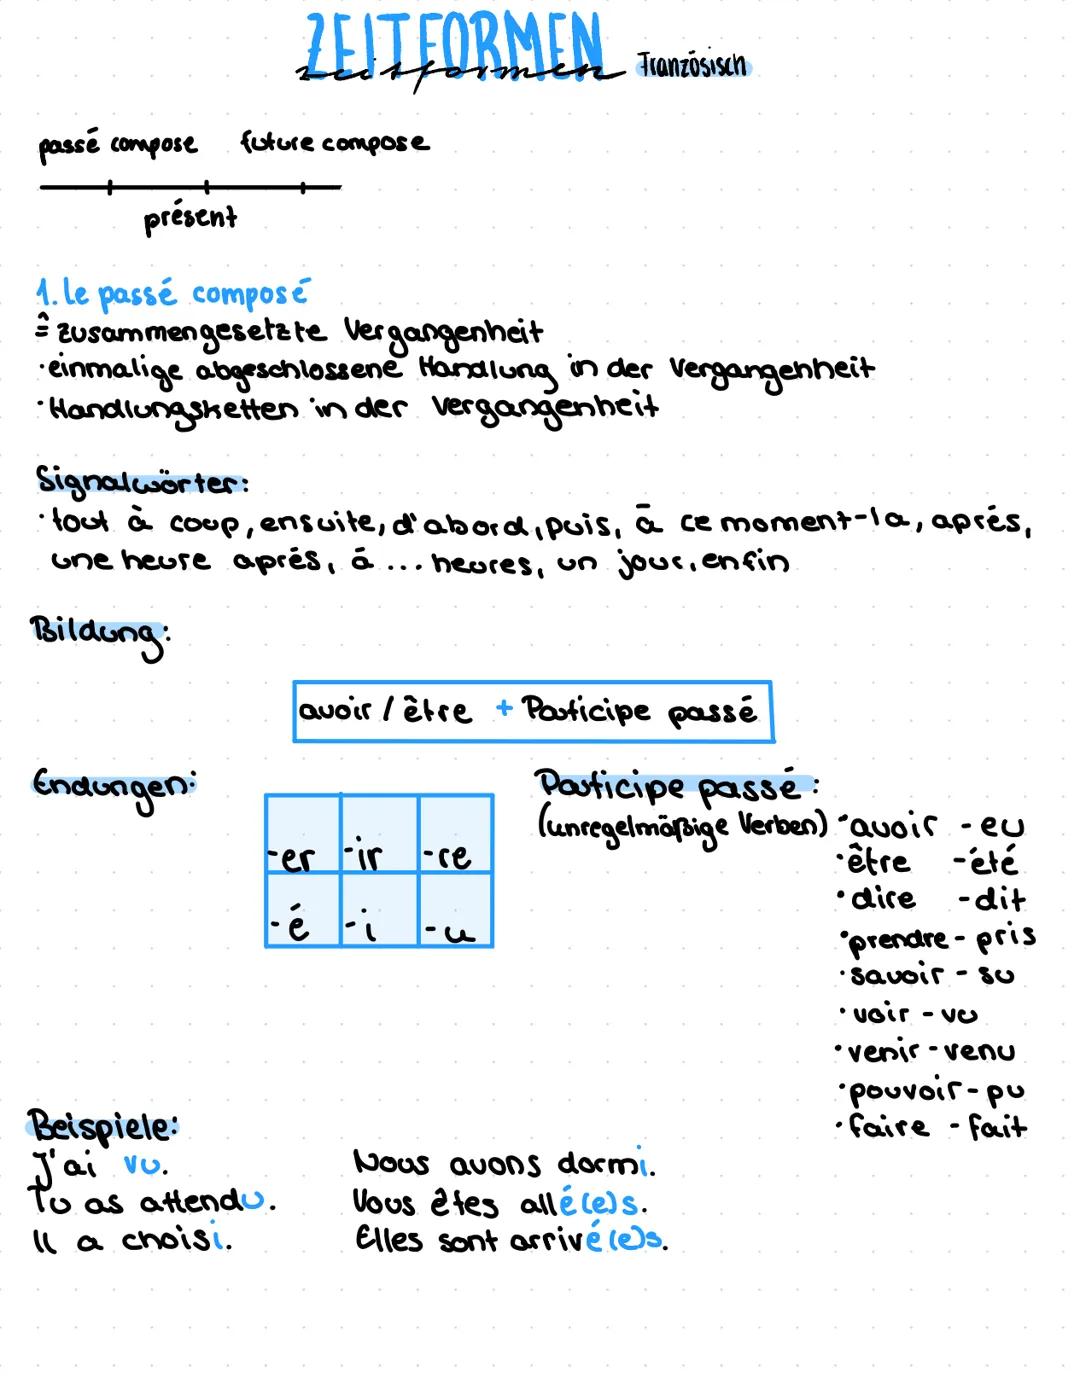 ZEITFORMEN
zeitformen Französisch
passé compose future compose
présent
1. le passé composé
≙ zusammengesetzte Vergangenheit
·einmalige abgeschlossene Handlung in der Vergangenheit
·Handlungsketten in der Vergangenheit
Signalwörter:
·tout à coup, ensuite, d'abord, puis, à ce moment-la, aprés,
une heure aprés, á ... heures, un jour, enfin
Bildung:
avoir / être + Participe passé
Endungen:
-er -ir -re
-é -i -u
Participe passé:
(unregelmäßige Verben) ·avoir - eu
·être - été
·dire - dit
·prendre - pris
·savoir - su
·voir - vu
·venir - venu
·pouvoir - pu
·faire - fait
Beispiele:
J'ai vu. Nous avons dormi.
Tu as attendu. Vous êtes allé(e)s.
Il a choisi. Elles sont arrivé(e)s.